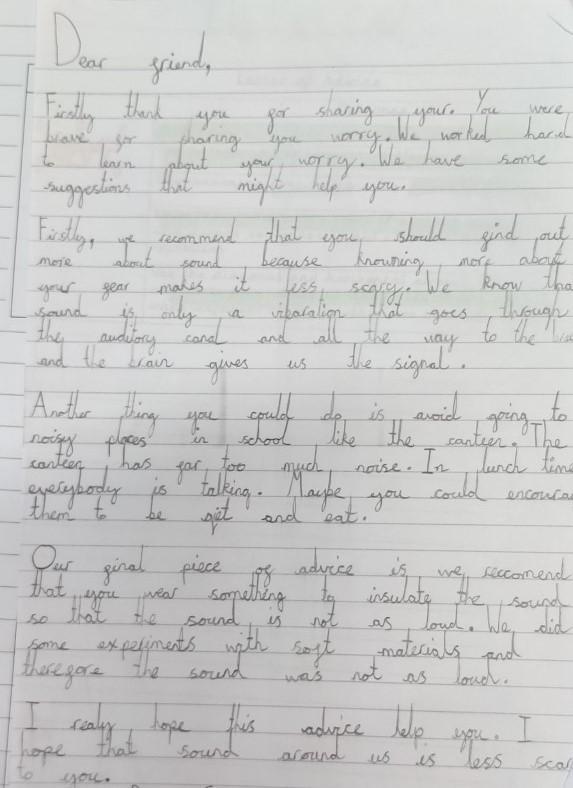 Dear friend,
Firstly thank you for sharing your. You were
brave for sharing you worry. We worked hard
to learn about your worry. We have some
suggestions that might help you.
Firstly, we recommend that you should find out
more about sound because knowning more about
your fear makes it less scary. We know tha
sound is only a vibaration that goes through
the auditory canal and all the way to the
and the brain gives us the signal.
Another thing you could do is avoid going to
noisy places in school like the canteen. The
canteen has far too much noise. In lunch time
everybody is talking. Maybe you could encoura
them to be and eat.
Our final piece of advice is we reccomend
that you wear something to insulate the sound
so that the sound is not as loud. We did
some experiments with soft materials and
therefore the sound was not as loud.
I realy hope this advice help you. I
hope that sound around us is less scar
to you.